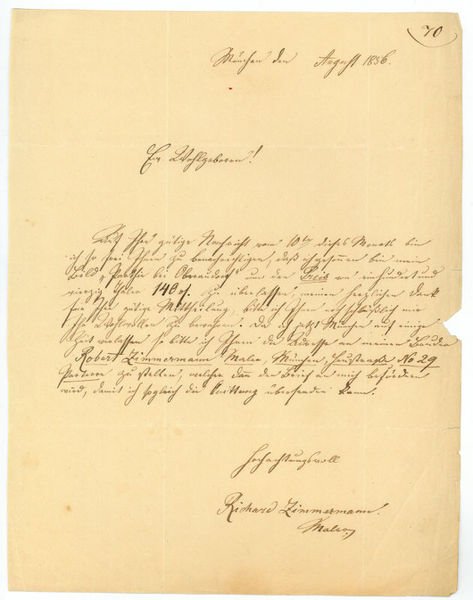 70
München den August 1856.
Ew. Wohlgeboren!
Auf Ihre gütige Nachricht vom 10ten dieses Monats bin
ich so frei Ihnen zu benachrichtigen, daß ich gesonnen bin mein
Bild „ Parthie bei Oberaudorf" um den Preis von einhundert und
vierzig Thaler 140 zu überlassen, meinen herzlichen Dank
für Ihre gütige Mittheilung, bitte ich Ihnen mir
Ihr Wohlwollen zu bewahren. Da ich jetzt München auf einige
Zeit verlasse so bitte ich Ihnen die Adresse an meinen Bruder
Robert Zimmermann Maler, München, No 29
Parterre zu stellen, welcher dann den Brief an mich befördern
wird, damit ich sogleich die Quittung übersenden kann.
Hochachtungsvoll
Richard Zimmermann.
Maler